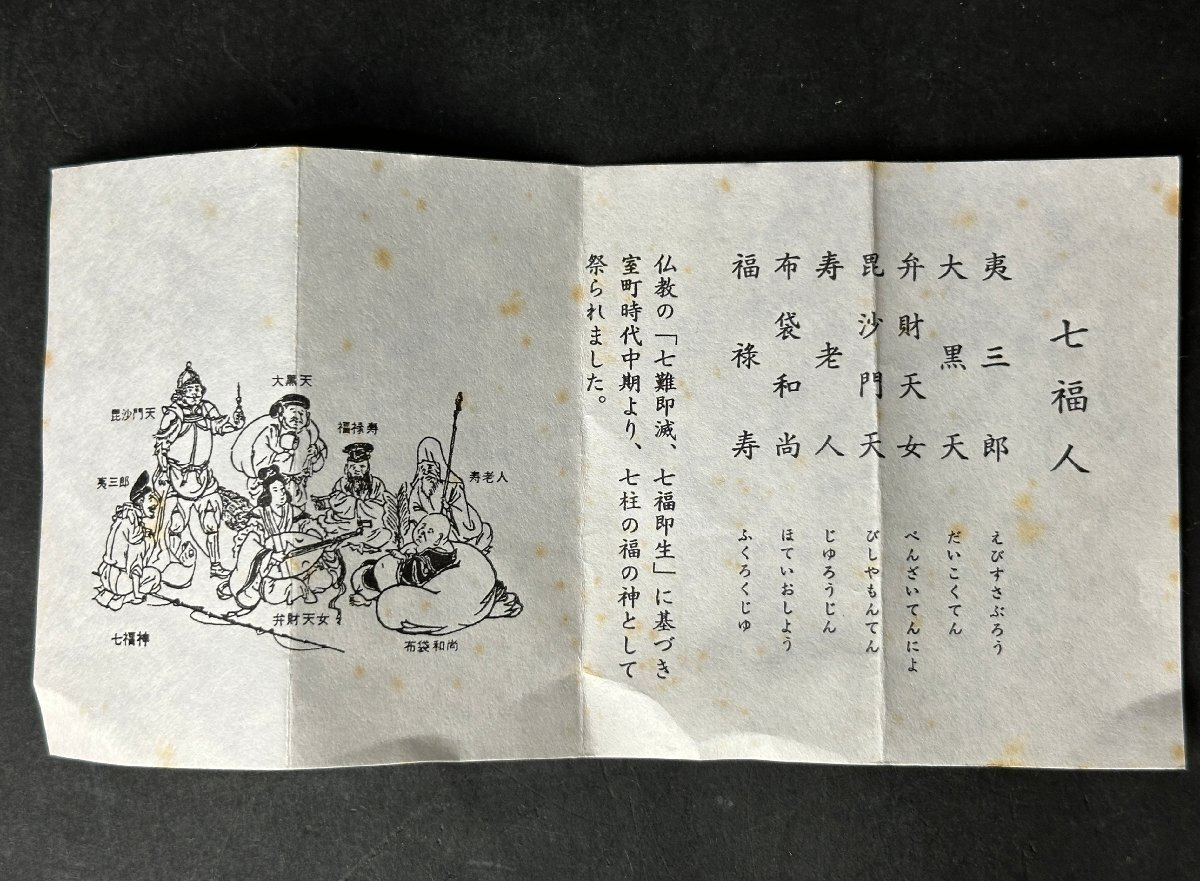 七福人
夷三郎 えびすさぶろう
大黒天 だいこくてん
弁財天女 べんざいてんによ
毘沙門天 びしやもんてん
寿老人 じゆろうじん
布袋和尚 ほていおしよう
福禄寿 ふくろくじゆ
仏教の「七難即滅、七福即生」に基づき
室町時代中期より、七柱の福の神として
祭られました。
大黒天
毘沙門天
福禄寿
夷三郎
寿老人
弁財天女
七福神
布袋和尚